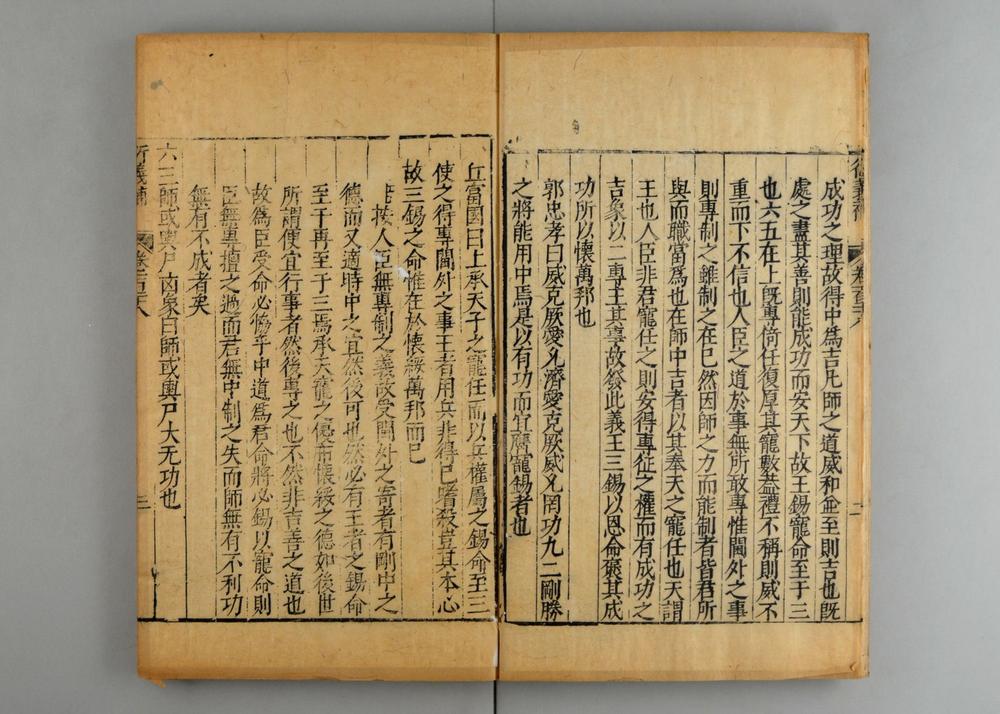 成功之理故得中為吉凡師之道威和並至則吉也既
處之盡其善則能成功而安天下故王錫寵命至于三
也六五在上既專倚任復厚其寵數蓋禮不稱則威不
重而下不信也人臣之道於事無所敢專惟閫外之事
則專制之雖制之在已然因師之力而能制者皆君所
與而職當為也在師中吉者以其奉天之寵任也天謂
王也人臣非君寵任之則安得專征之權而有成功之
吉象以二專主其事故發此義王三錫以恩命褒其成
功所以懷萬邦也
郭忠孝曰威克厥愛允濟愛克厥威允罔功九二剛勝
之將能用中焉是以有功而宜膺寵錫者也
丘富國曰上承天子之寵任而以兵權屬之錫命至三
使之得專閫外之事王者用兵非得已嗜殺豈其本心
故三錫之命惟在於懷綏萬邦而已
按人臣無專制之義故受閫外之寄者有剛中之
德而又適時中之宜然後可也然必有王者之錫命
至于再至于三焉承天寵之優布懷綏之德如後世
所謂便宜行事者然後專之也不然非吉善之道也
故為臣受命必協乎中道為君命將必錫以寵命則
臣無專擅之過而君無中制之失而師無有不利功
無有不成者矣
六三師或輿尸凶象曰師或輿尸大无功也